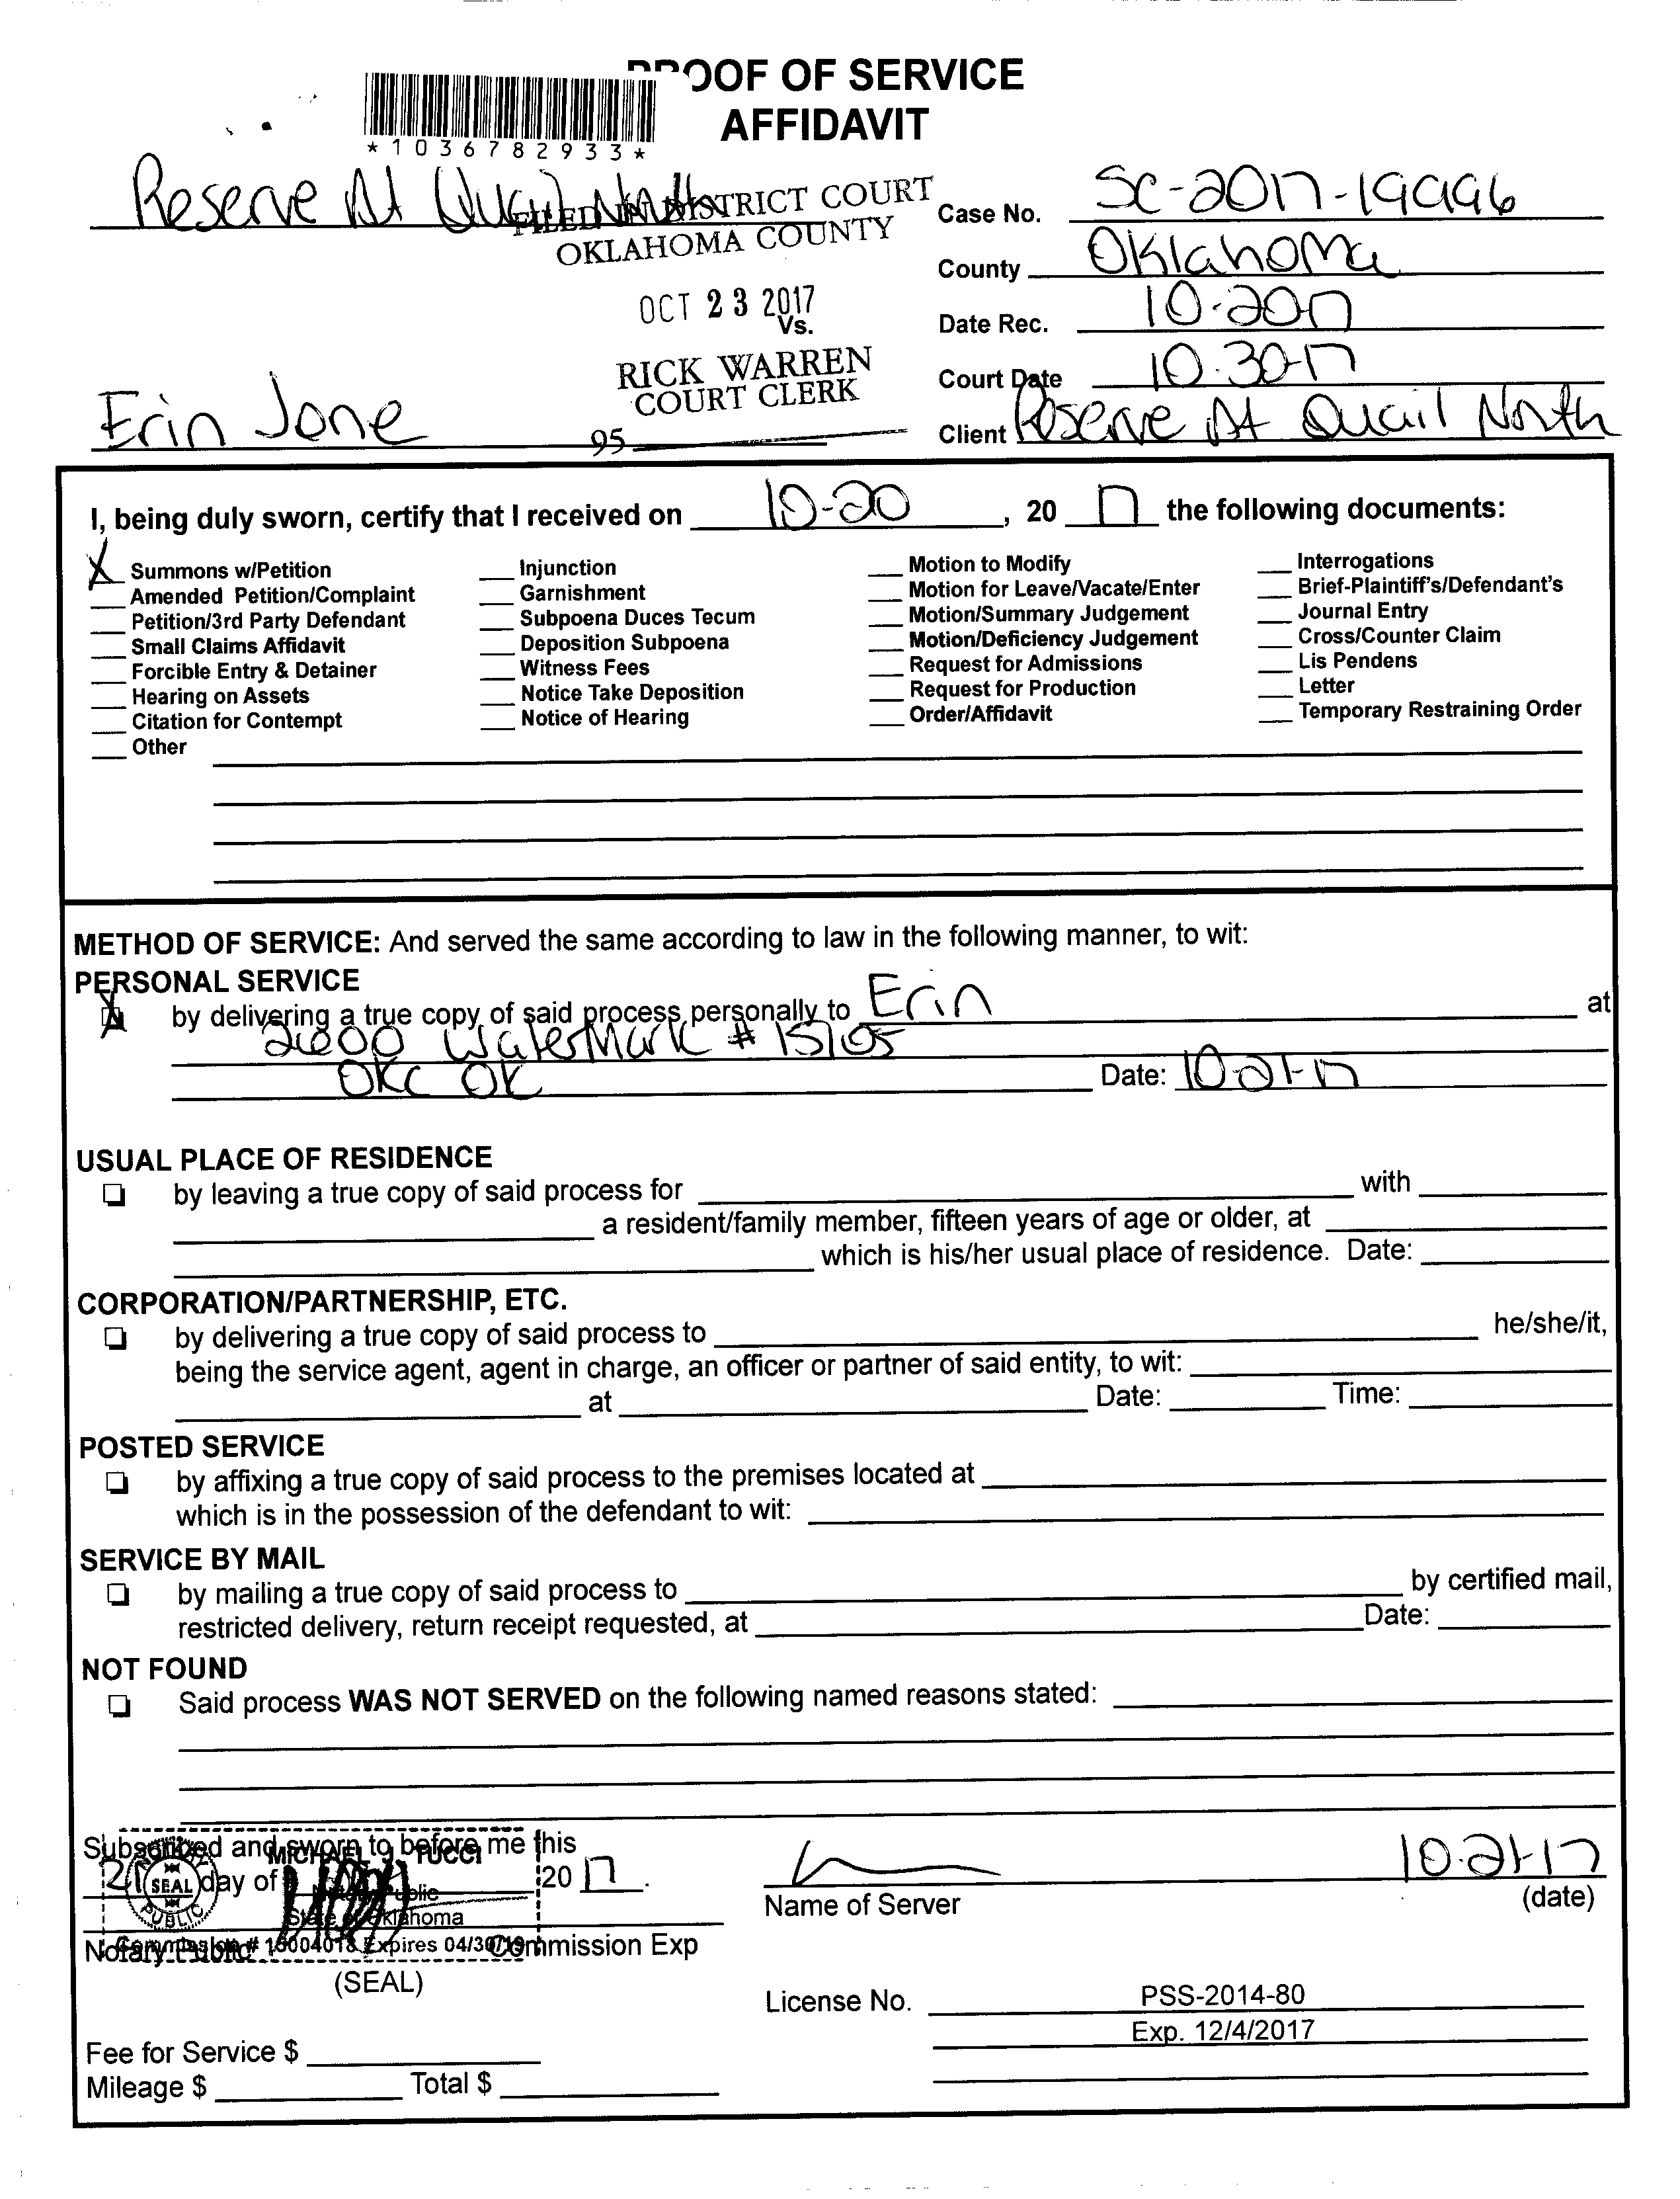 PROOF OF SERVICE
AFFIDAVIT
*1036782933*
Reserve At Quail North
FILED IN DISTRICT COURT
OKLAHOMA COUNTY
OCT 23 2017
Vs.
RICK WARREN
COURT CLERK
95
Erin Jone
Case No. SC-2017-19996
County Oklahoma
Date Rec. 10-20-17
Court Date 10-30-17
Client Reserve At Quail North
I, being duly sworn, certify that I received on 10-20, 20 17 the following documents:
X Summons w/Petition
Amended Petition/Complaint
Petition/3rd Party Defendant
Small Claims Affidavit
Forcible Entry & Detainer
Hearing on Assets
Citation for Contempt
Other
Injunction
Garnishment
Subpoena Duces Tecum
Deposition Subpoena
Witness Fees
Notice Take Deposition
Notice of Hearing
Motion to Modify
Motion for Leave/Vacate/Enter
Motion/Summary Judgement
Motion/Deficiency Judgement
Request for Admissions
Request for Production
Order/Affidavit
Interrogations
Brief-Plaintiff's/Defendant's
Journal Entry
Cross/Counter Claim
Lis Pendens
Letter
Temporary Restraining Order
METHOD OF SERVICE: And served the same according to law in the following manner, to wit:
PERSONAL SERVICE
X by delivering a true copy of said process personally to Erin at
2600 Watermark # 15105
OKC OK Date: 10-21-17
USUAL PLACE OF RESIDENCE
by leaving a true copy of said process for with
a resident/family member, fifteen years of age or older, at
which is his/her usual place of residence. Date:
CORPORATION/PARTNERSHIP, ETC.
by delivering a true copy of said process to he/she/it,
being the service agent, agent in charge, an officer or partner of said entity, to wit:
at Date: Time:
POSTED SERVICE
by affixing a true copy of said process to the premises located at
which is in the possession of the defendant to wit:
SERVICE BY MAIL
by mailing a true copy of said process to by certified mail,
restricted delivery, return receipt requested, at Date:
NOT FOUND
Said process WAS NOT SERVED on the following named reasons stated:
Subscribed and sworn to before me this
21 day of 20 17.
MICHAEL J. TUCCI
Notary Public
State of Oklahoma
Commission # 15004018 Expires 04/30/19
NOTARY PUBLIC SEAL
Notary Public Commission Exp
(SEAL)
10-21-17
Name of Server (date)
License No. PSS-2014-80
Exp. 12/4/2017
Fee for Service $
Mileage $ Total $